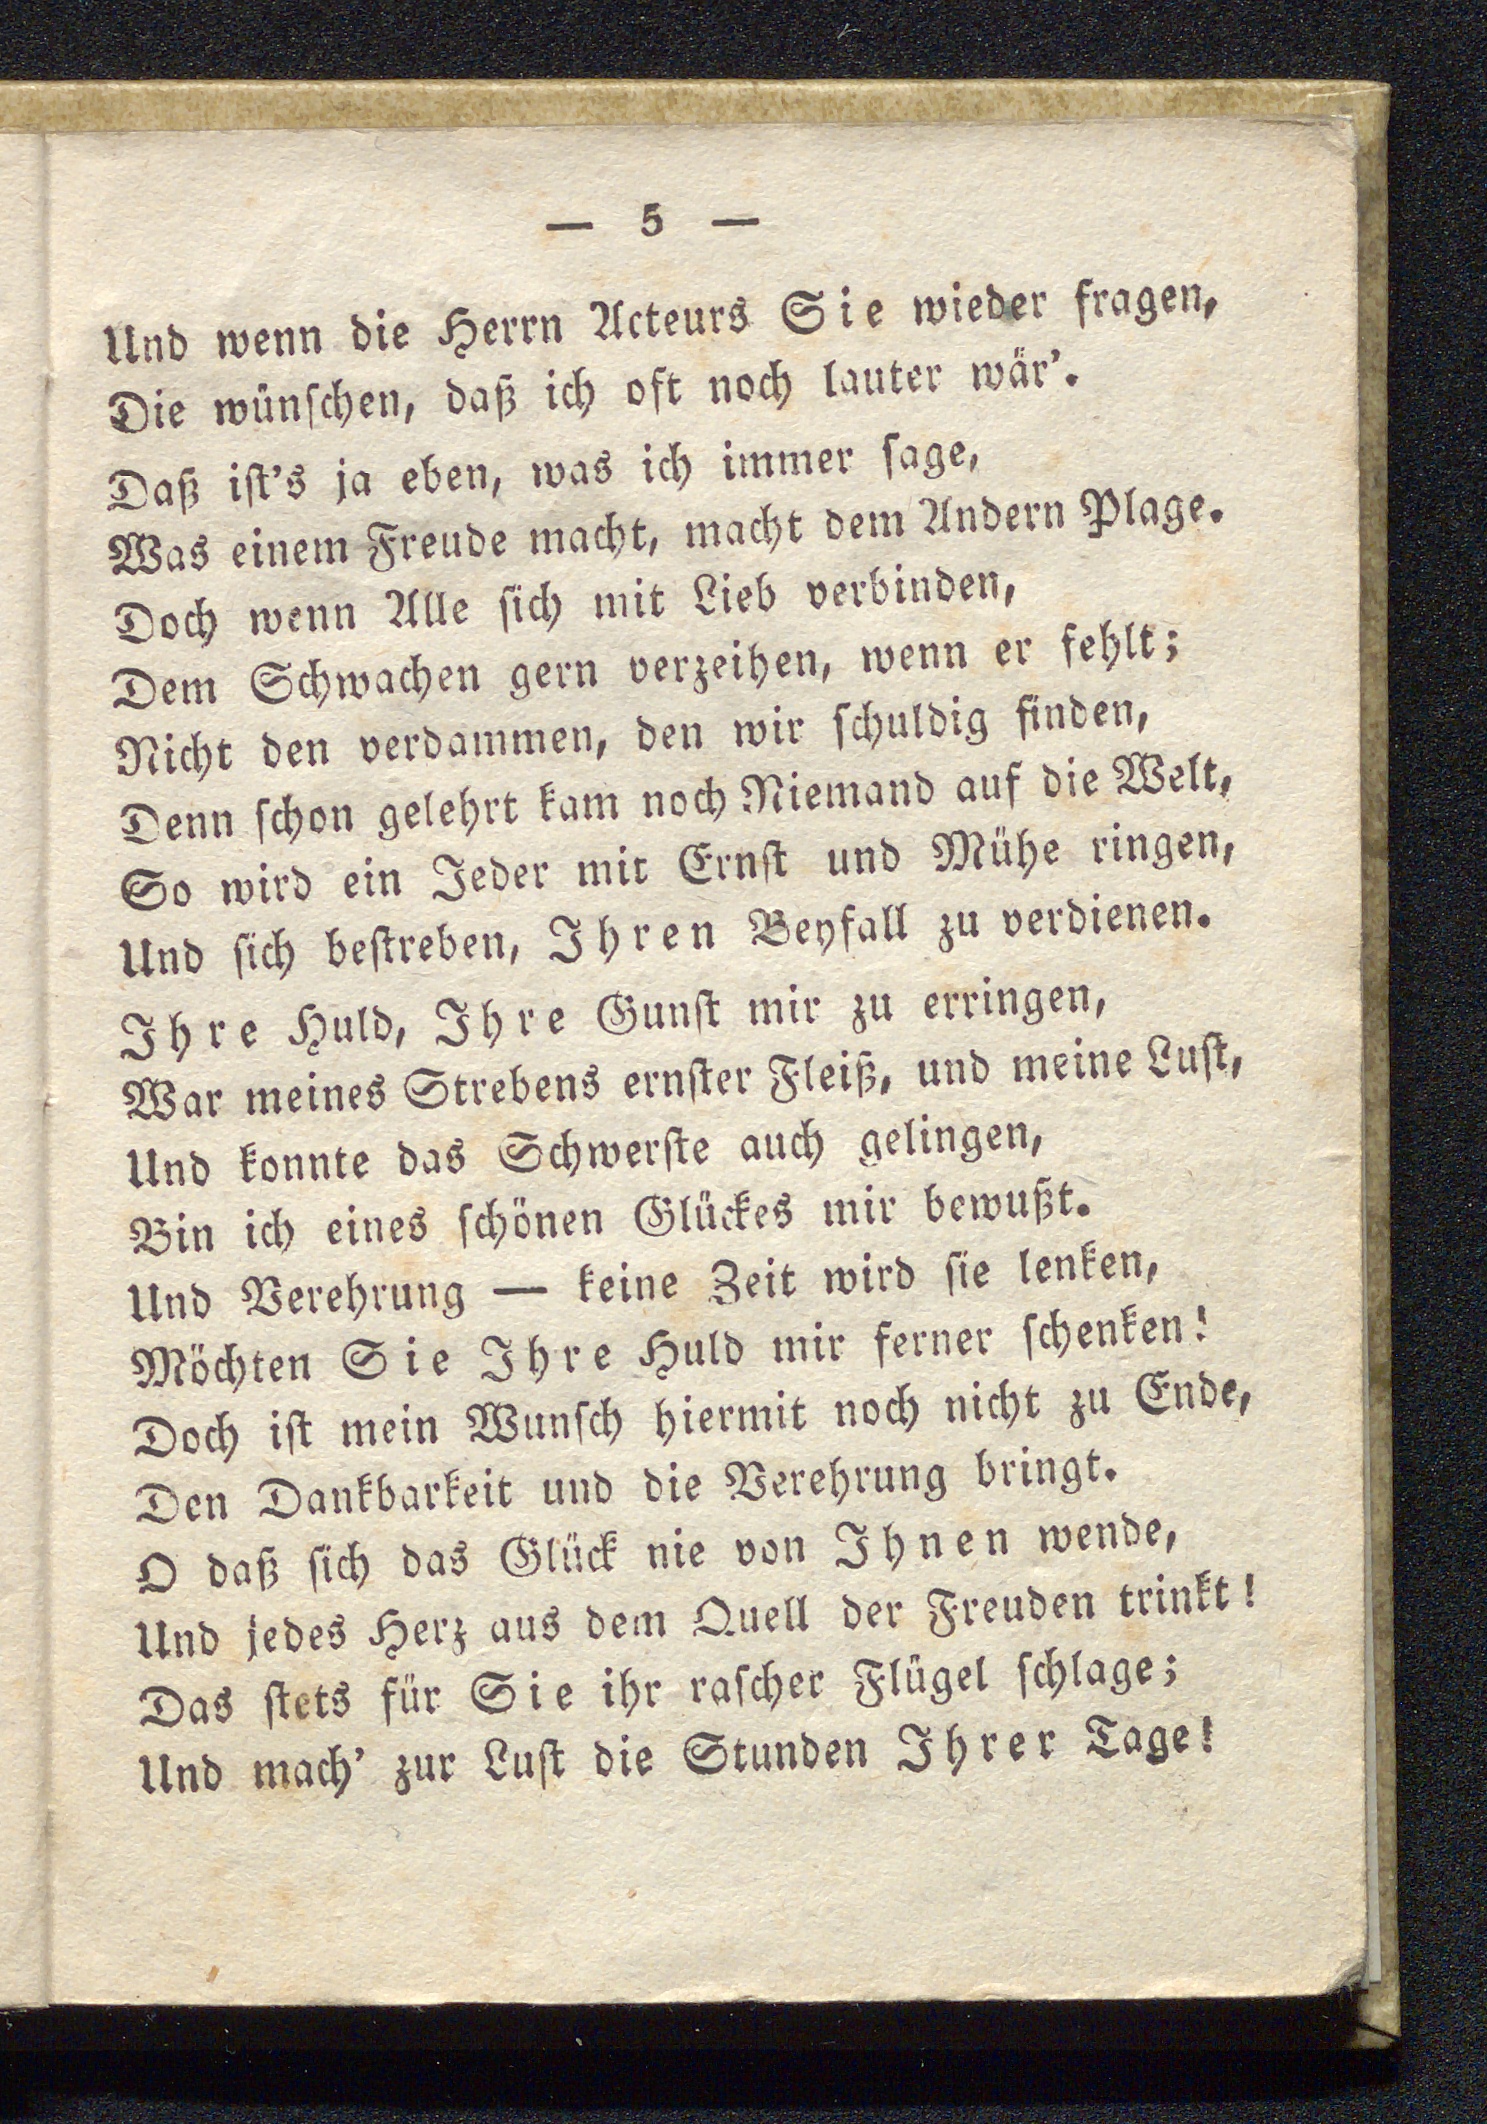 — 5 —
Und wenn die Herrn Acteurs Sie wieder fragen,
Die wünſchen, daß ich oft noch lauter wär’.
Daß iſt’s ja eben, was ich immer ſage,
Was einem Freude macht, macht dem Andern Plage.
Doch wenn Alle ſich mit Lieb verbinden,
Dem Schwachen gern verzeihen, wenn er fehlt;
Nicht den verdammen, den wir ſchuldig finden,
Denn ſchon gelehrt kam noch Niemand auf die Welt,
So wird ein Jeder mit Ernſt und Mühe ringen,
Und ſich beſtreben, Ihren Beyfall zu verdienen.
Ihre Huld, Ihre Gunſt mir zu erringen,
War meines Strebens ernſter Fleiß, und meine Luſt,
Und konnte das Schwerſte auch gelingen,
Bin ich eines ſchönen Glückes mir bewußt.
Und Verehrung — keine Zeit wird ſie lenken,
Möchten Sie Ihre Huld mir ferner ſchenken!
Doch iſt mein Wunſch hiermit noch nicht zu Ende,
Den Dankbarkeit und die Verehrung bringt.
O daß ſich das Glück nie von Ihnen wende,
Und jedes Herz aus dem Quell der Freuden trinkt!
Das ſtets für Sie ihr raſcher Flügel ſchlage;
Und mach’ zur Luſt die Stunden Ihrer Tage!